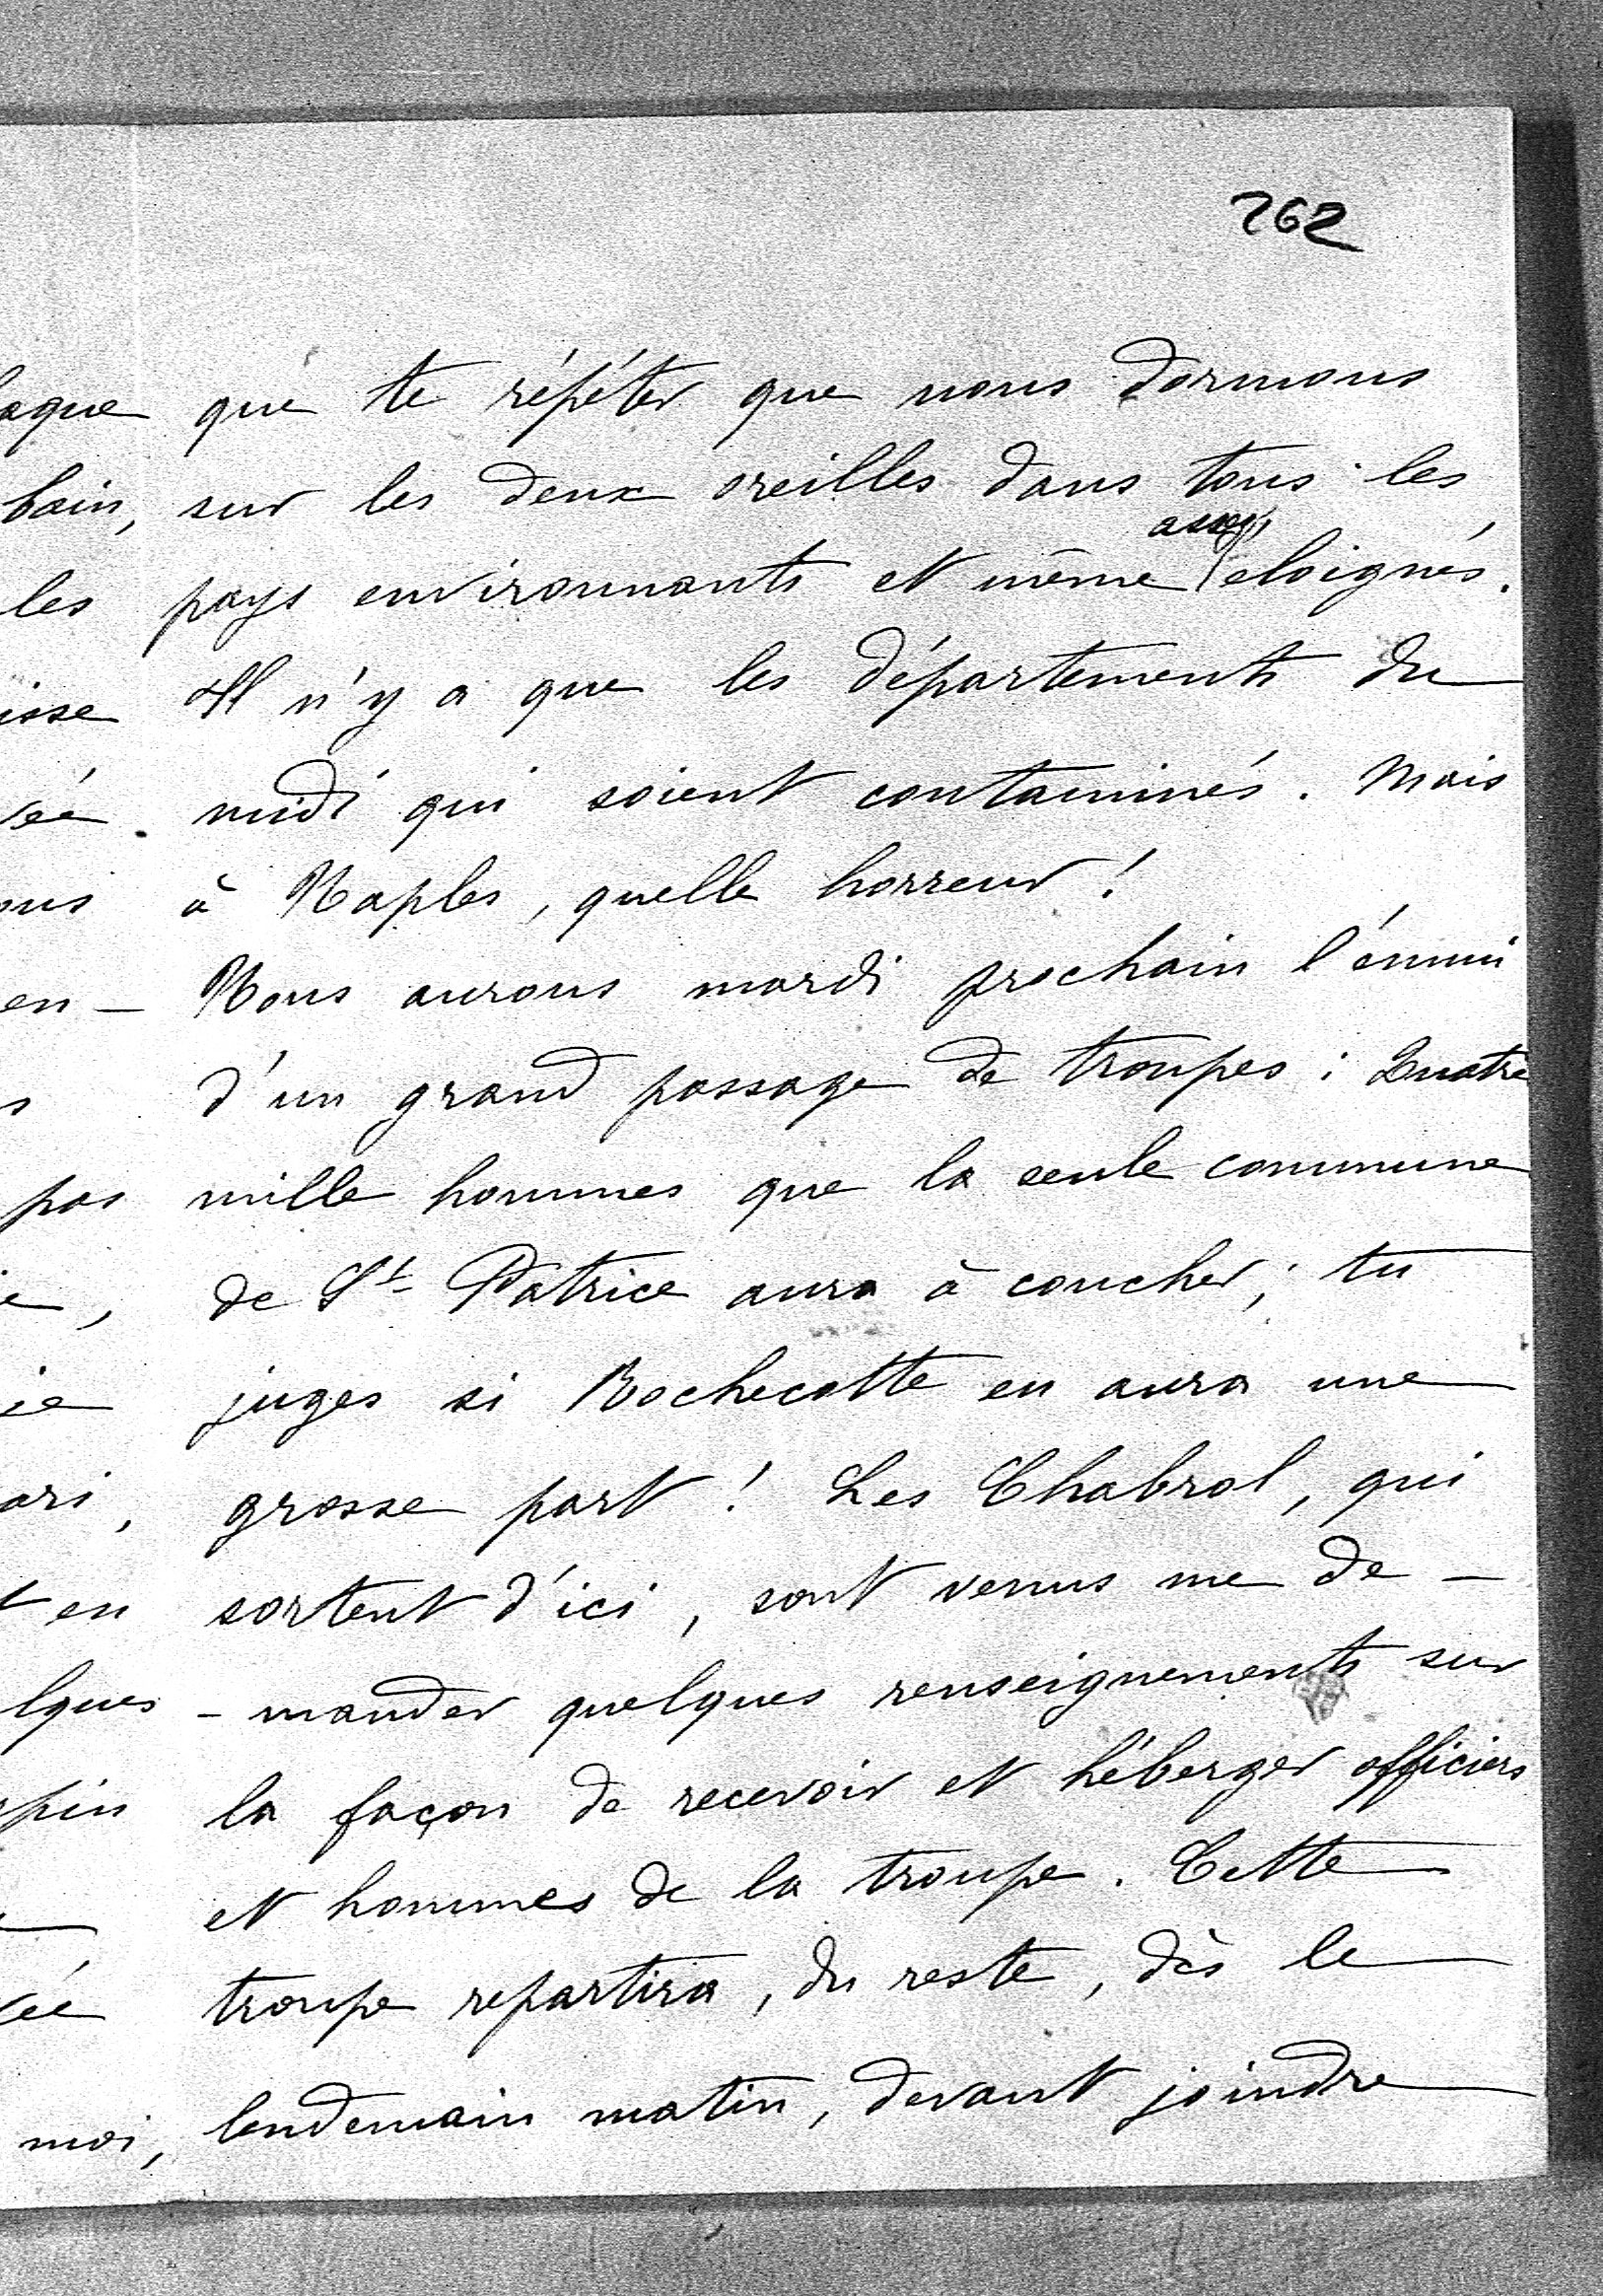 262
que te répéter que nous dormons
sur les deux oreilles dans tous les
pays environnants et même assez eloignés.
Il n'y a que les départements du
midi qui soient contaminés. Mais
à Naples, quelle horreur !
Nous aurons mardi prochain l'énnui
d'un grand passage de troupes : Quatre
mille hommes que la seule commune
de St. Patrice aura à coucher ; tu
juges si Rochecotte en aura une
grosse part ! Les Chabrol, qui
sortent d'ici, sont venus me de-
-mander quelques renseignements sur
la façon de recevoir et héberger officiers
et hommes de la troupe. Cette
troupe repartira, du reste, dès le
lendemain matin, devant joindre
bain,
les
pas
en
moi,